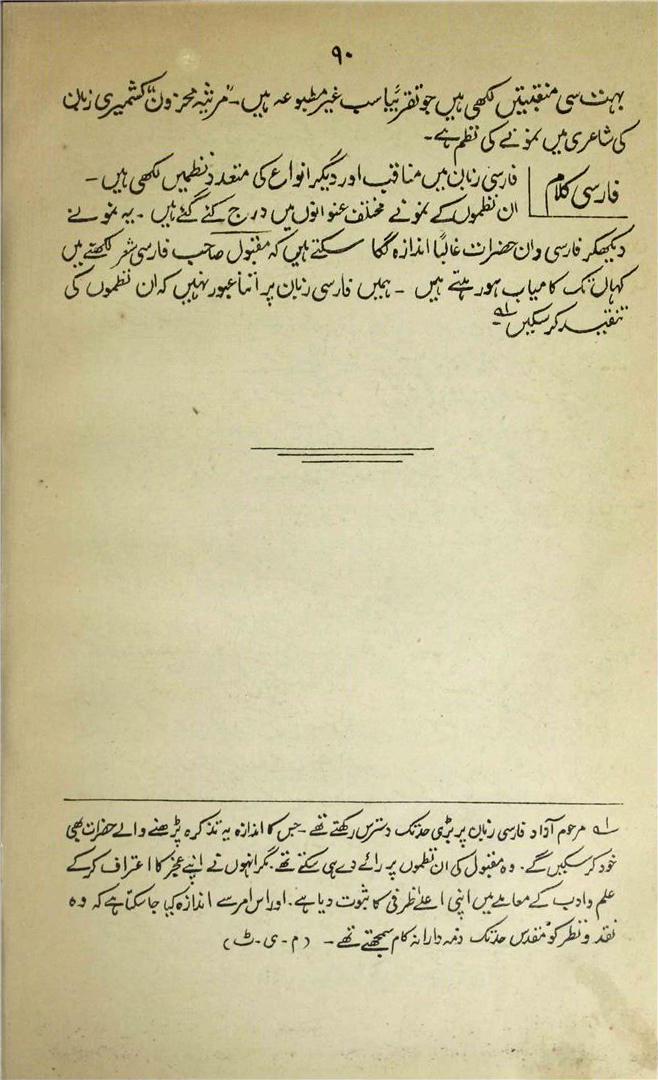 ۹۰
بہت سی منقبتیں لکھی ہیں جو تقریباً سب غیر مطبوعہ ہیں۔ "مرثیہ محزون" کشمیری زبان
کی شاعری میں نمونے کی نظم ہے۔
فارسی کلام
فارسی زبان میں مناقب اور دیگر انواع کی متعدد نظمیں لکھی ہیں۔
ان نظموں کے نمونے مختلف عنوانوں میں درج کئے گئے ہیں۔ یہ نمونے
دیکھکر فارسی دان حضرات غالباً اندازہ لگا سکتے ہیں کہ مقبول صاحب فارسی شعر لکھنے میں
کہاں تک کامیاب ہو رہتے ہیں۔ ہمیں فارسی زبان پر اتنا عبور نہیں کہ ان نظموں کی
تنقید کر سکیں ۱ے
۱ے مرحوم آزاد فارسی زبان پر بڑی حد تک دسترس رکھتے تھے۔ جس کا اندازہ یہ تذکرہ پڑھنے والے حضرات بھی
خود کر سکیں گے۔ وہ مقبول کی ان نظموں پر رائے دے ہی سکتے تھے۔ مگر انہوں نے اپنے عجز کا اعتراف کر کے
علم و ادب کے معاملے میں اپنی اعلےٰ ظرفی کا ثبوت دیا ہے۔ اور اس امر سے اندازہ کیا جا سکتا ہے کہ وہ
نقد و نظر کو مقدس حد تک ذمہ دارانہ کام سمجھتے تھے۔ (م۔ی۔ٹ)